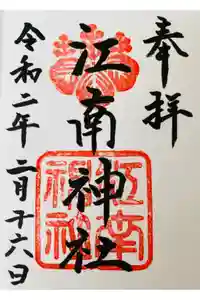 奉拝
江南神社
令和二年二月十六日
江南神社